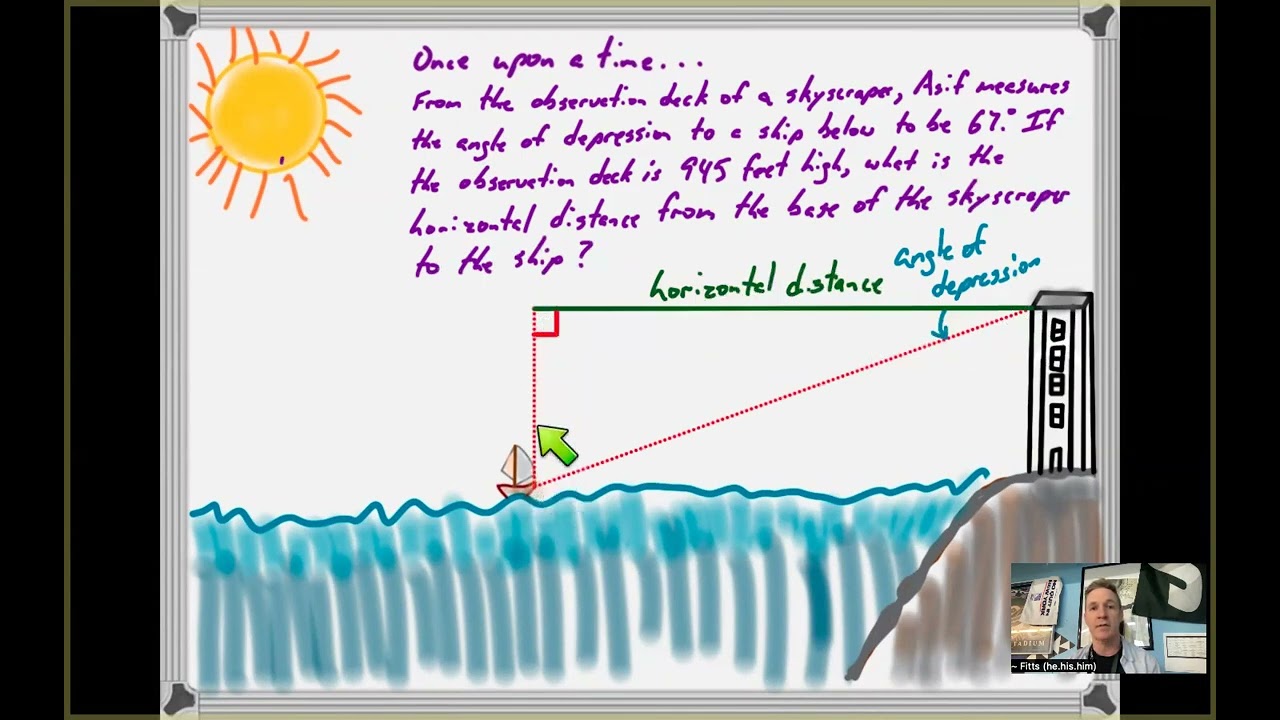 Once upon a time...
From the observation deck of a skyscraper, Asif measures
the angle of depression to a ship below to be 67.° If
the observation deck is 945 feet high, what is the
horizontal distance from the base of the skyscraper
to the ship?
angle of
depression
horizontal distance
~ Fitts (he.his.him)